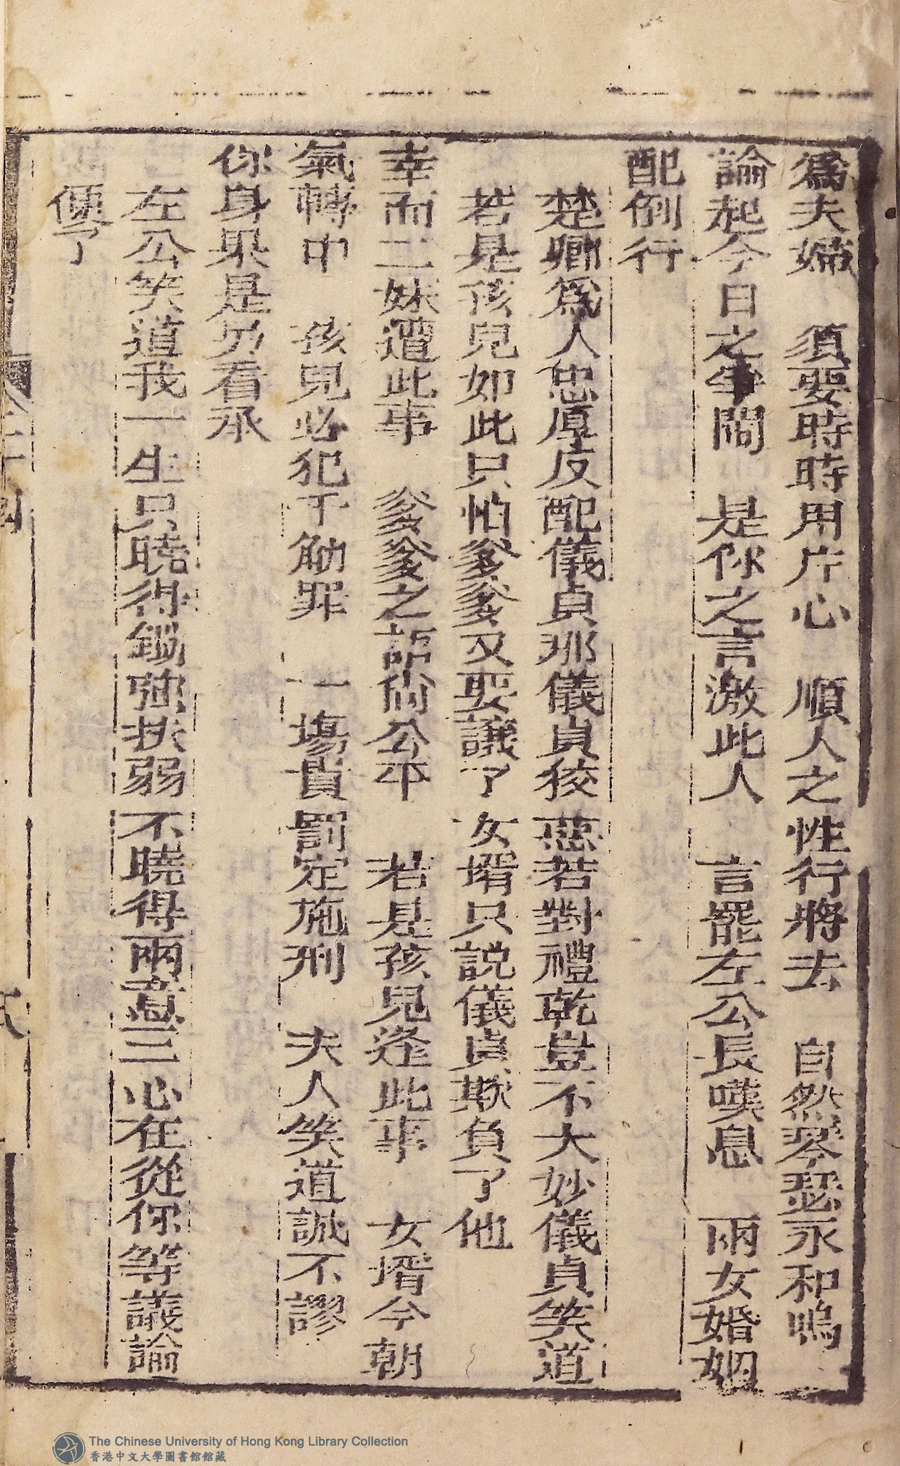 為夫婦　須要時時用片心　順人之性行將去　自然琴瑟永和鳴
論起今日之爭鬧　是你之言激此人　言罷左公長嘆息　兩女婚姻
配倒行
楚卿為人忠厚反配儀貞那儀貞狡惡若對禮乾豈不大妙儀貞笑道
若是孩兒如此只怕爹爹又要議了女壻只說儀貞欺負了他
幸而二妹遭此事　爹爹之話尚公平　若是孩兒逢此事　女壻今朝
氣轉中　孩兒必犯干觔罪　一塲責罰定施刑　夫人笑道誠不謬
你身果是另看承
左公笑道我一生只曉得鋤強扶弱不曉得兩意三心在從你等議論
便了
二十四
The Chinese University of Hong Kong Library Collection
香港中文大學圖書館館藏